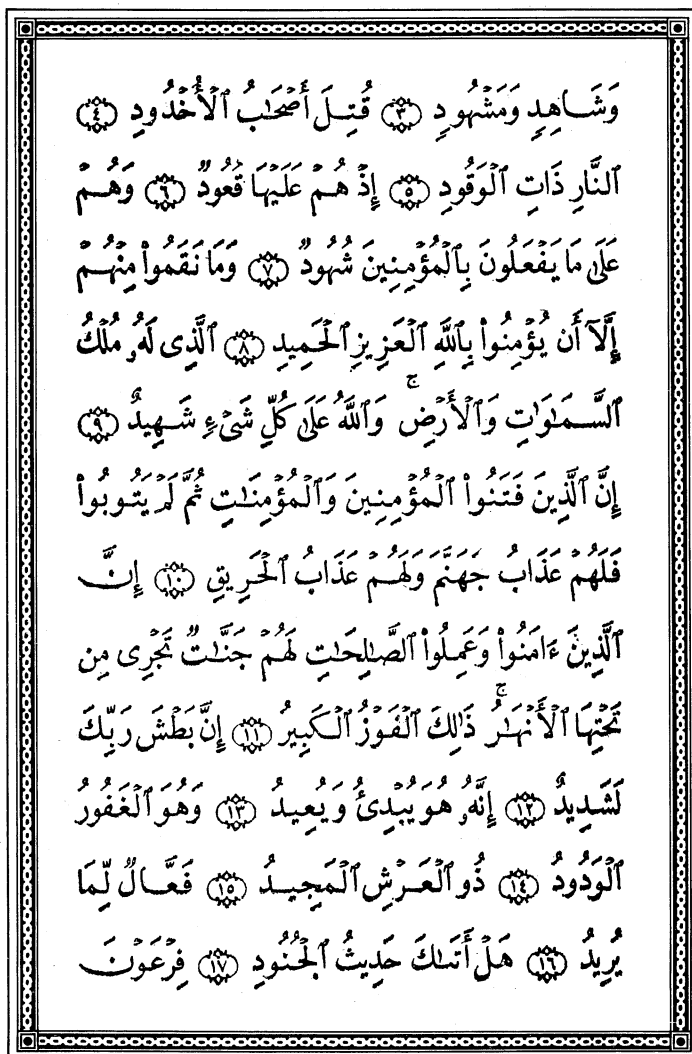 وَشَاهِدٍ وَمَشْهُودٍ ﴿٣﴾ قُتِلَ أَصْحَٰبُ ٱلْأُخْدُودِ ﴿٤﴾
ٱلنَّارِ ذَاتِ ٱلْوَقُودِ ﴿٥﴾ إِذْ هُمْ عَلَيْهَا قُعُودٌ ﴿٦﴾ وَهُمْ
عَلَىٰ مَا يَفْعَلُونَ بِٱلْمُؤْمِنِينَ شُهُودٌ ﴿٧﴾ وَمَا نَقَمُوا۟ مِنْهُمْ
إِلَّآ أَن يُؤْمِنُوا۟ بِٱللَّهِ ٱلْعَزِيزِ ٱلْحَمِيدِ ﴿٨﴾ ٱلَّذِى لَهُۥ مُلْكُ
ٱلسَّمَٰوَٰتِ وَٱلْأَرْضِ ۚ وَٱللَّهُ عَلَىٰ كُلِّ شَىْءٍ شَهِيدٌ ﴿٩﴾
إِنَّ ٱلَّذِينَ فَتَنُوا۟ ٱلْمُؤْمِنِينَ وَٱلْمُؤْمِنَٰتِ ثُمَّ لَمْ يَتُوبُوا۟
فَلَهُمْ عَذَابُ جَهَنَّمَ وَلَهُمْ عَذَابُ ٱلْحَرِيقِ ﴿١٠﴾ إِنَّ
ٱلَّذِينَ ءَامَنُوا۟ وَعَمِلُوا۟ ٱلصَّٰلِحَٰتِ لَهُمْ جَنَّٰتٌ تَجْرِى مِن
تَحْتِهَا ٱلْأَنْهَٰرُ ۚ ذَٰلِكَ ٱلْفَوْزُ ٱلْكَبِيرُ ﴿١١﴾ إِنَّ بَطْشَ رَبِّكَ
لَشَدِيدٌ ﴿١٢﴾ إِنَّهُۥ هُوَ يُبْدِئُ وَيُعِيدُ ﴿١٣﴾ وَهُوَ ٱلْغَفُورُ
ٱلْوَدُودُ ﴿١٤﴾ ذُو ٱلْعَرْشِ ٱلْمَجِيدُ ﴿١٥﴾ فَعَّالٌ لِّمَا
يُرِيدُ ﴿١٦﴾ هَلْ أَتَىٰكَ حَدِيثُ ٱلْجُنُودِ ﴿١٧﴾ فِرْعَوْنَ